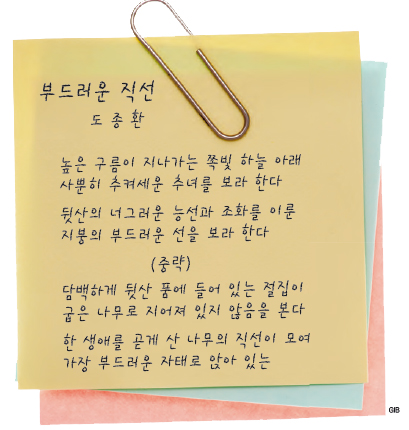 부드러운 직선
도종환
높은 구름이 지나가는 쪽빛 하늘 아래
사뿐히 추켜세운 추녀를 보라 한다
뒷산의 너그러운 능선과 조화를 이룬
지붕의 부드러운 선을 보라 한다
(중략)
담백하게 뒷산 품에 들어 있는 절집이
굽은 나무로 지어져 있지 않음을 본다
한 생애를 곧게 산 나무의 직선이 모여
가장 부드러운 자태로 앉아 있는
GIB